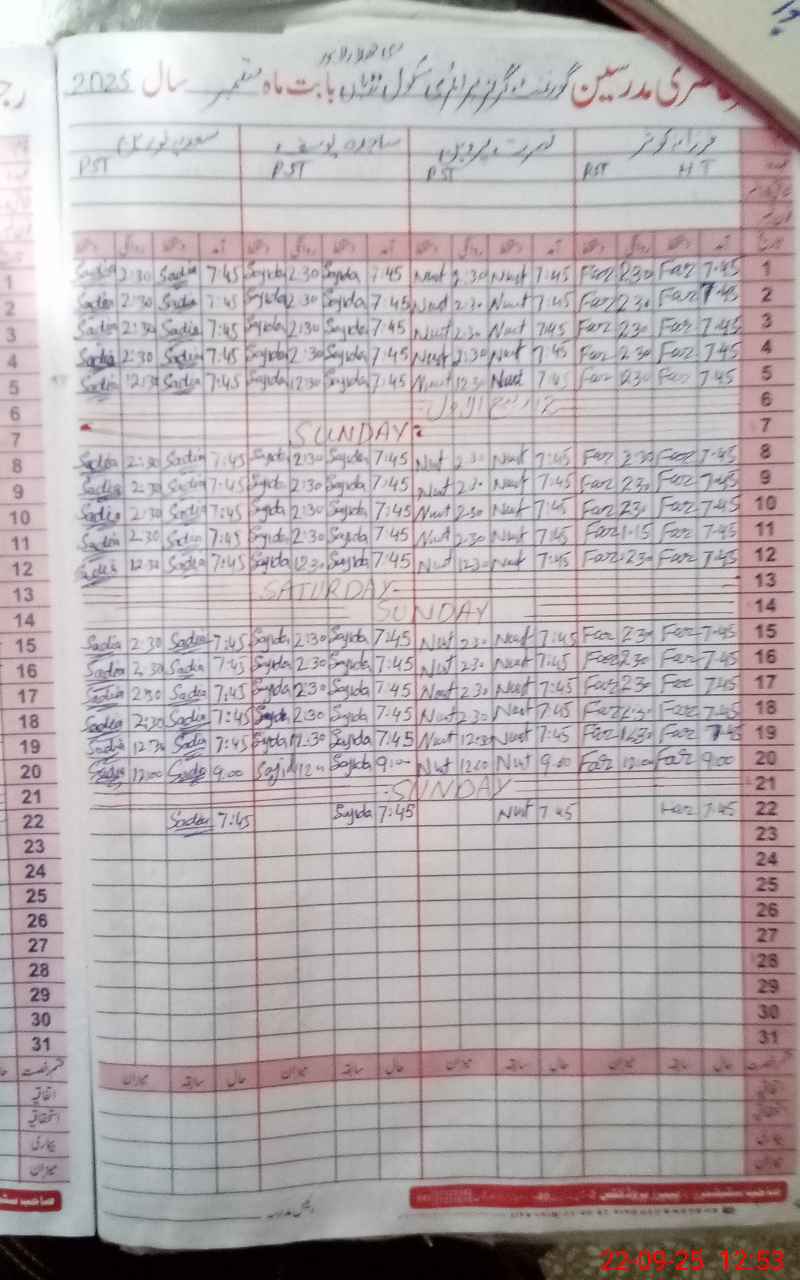 حاضری مدرسین گورنمنٹ گرلز پرائمری سکول بابت ماہ ستمبر سال 2025
فرزانہ کوثر نصرت پروین ساجدہ یوسف سعدیہ
PST PST PST PST HT
1 Sadia 2:30 Sadia 7:45 Sajida 2:30 Sajida 7:45 Nust 2:30 Nust 7:45 Far 2:30 Far 7:45 1
2 Sadia 2:30 Sadia 7:45 Sajida 2:30 Sajida 7:45 Nust 2:30 Nust 7:45 Far 2:30 Far 7:45 2
3 Sadia 2:30 Sadia 7:45 Sajida 2:30 Sajida 7:45 Nust 2:30 Nust 7:45 Far 2:30 Far 7:45 3
4 Sadia 2:30 Sadia 7:45 Sajida 2:30 Sajida 7:45 Nust 2:30 Nust 7:45 Far 2:30 Far 7:45 4
5 Sadia 12:30 Sadia 7:45 Sajida 12:30 Sajida 7:45 Nust 12:30 Nust 7:45 Far 12:30 Far 7:45 5
6 12 ربیع الاول 6
7 SUNDAY 7
8 Sadia 2:30 Sadia 7:45 Sajida 2:30 Sajida 7:45 Nust 2:30 Nust 7:45 Far 2:30 Far 7:45 8
9 Sadia 2:30 Sadia 7:45 Sajida 2:30 Sajida 7:45 Nust 2:30 Nust 7:45 Far 2:30 Far 7:45 9
10 Sadia 2:30 Sadia 7:45 Sajida 2:30 Sajida 7:45 Nust 2:30 Nust 7:45 Far 2:30 Far 7:45 10
11 Sadia 2:30 Sadia 7:45 Sajida 2:30 Sajida 7:45 Nust 2:30 Nust 7:45 Far 1:15 Far 7:45 11
12 Sadia 12:30 Sadia 7:45 Sajida 12:30 Sajida 7:45 Nust 12:30 Nust 7:45 Far 12:30 Far 7:45 12
13 SATURDAY 13
14 SUNDAY 14
15 Sadia 2:30 Sadia 7:45 Sajida 2:30 Sajida 7:45 Nust 2:30 Nust 7:45 Far 2:30 Far 7:45 15
16 Sadia 2:30 Sadia 7:45 Sajida 2:30 Sajida 7:45 Nust 2:30 Nust 7:45 Far 2:30 Far 7:45 16
17 Sadia 2:30 Sadia 7:45 Sajida 2:30 Sajida 7:45 Nust 2:30 Nust 7:45 Far 2:30 Far 7:45 17
18 Sadia 2:30 Sadia 7:45 Sajida 2:30 Sajida 7:45 Nust 2:30 Nust 7:45 Far 2:30 Far 7:45 18
19 Sadia 12:30 Sadia 7:45 Sajida 12:30 Sajida 7:45 Nust 12:30 Nust 7:45 Far 12:30 Far 7:45 19
20 Sadia 12:00 Sadia 9:00 Sajida Sajida 9:00 Nust 12:00 Nust 9:00 Far 12:00 Far 9:00 20
21 SUNDAY 21
22 Sadia 7:45 Sajida 7:45 Nust 7:45 Far 7:45 22
23 23
24 24
25 25
26 26
27 27
28 28
29 29
30 30
31 31
قسم رخصت حال سابقہ میزان حال سابقہ میزان حال سابقہ میزان حال سابقہ میزان قسم رخصت
اتفاقیہ اتفاقیہ
استحقاقیہ استحقاقیہ
بیماری بیماری
میزان میزان
22-09-25 12:53